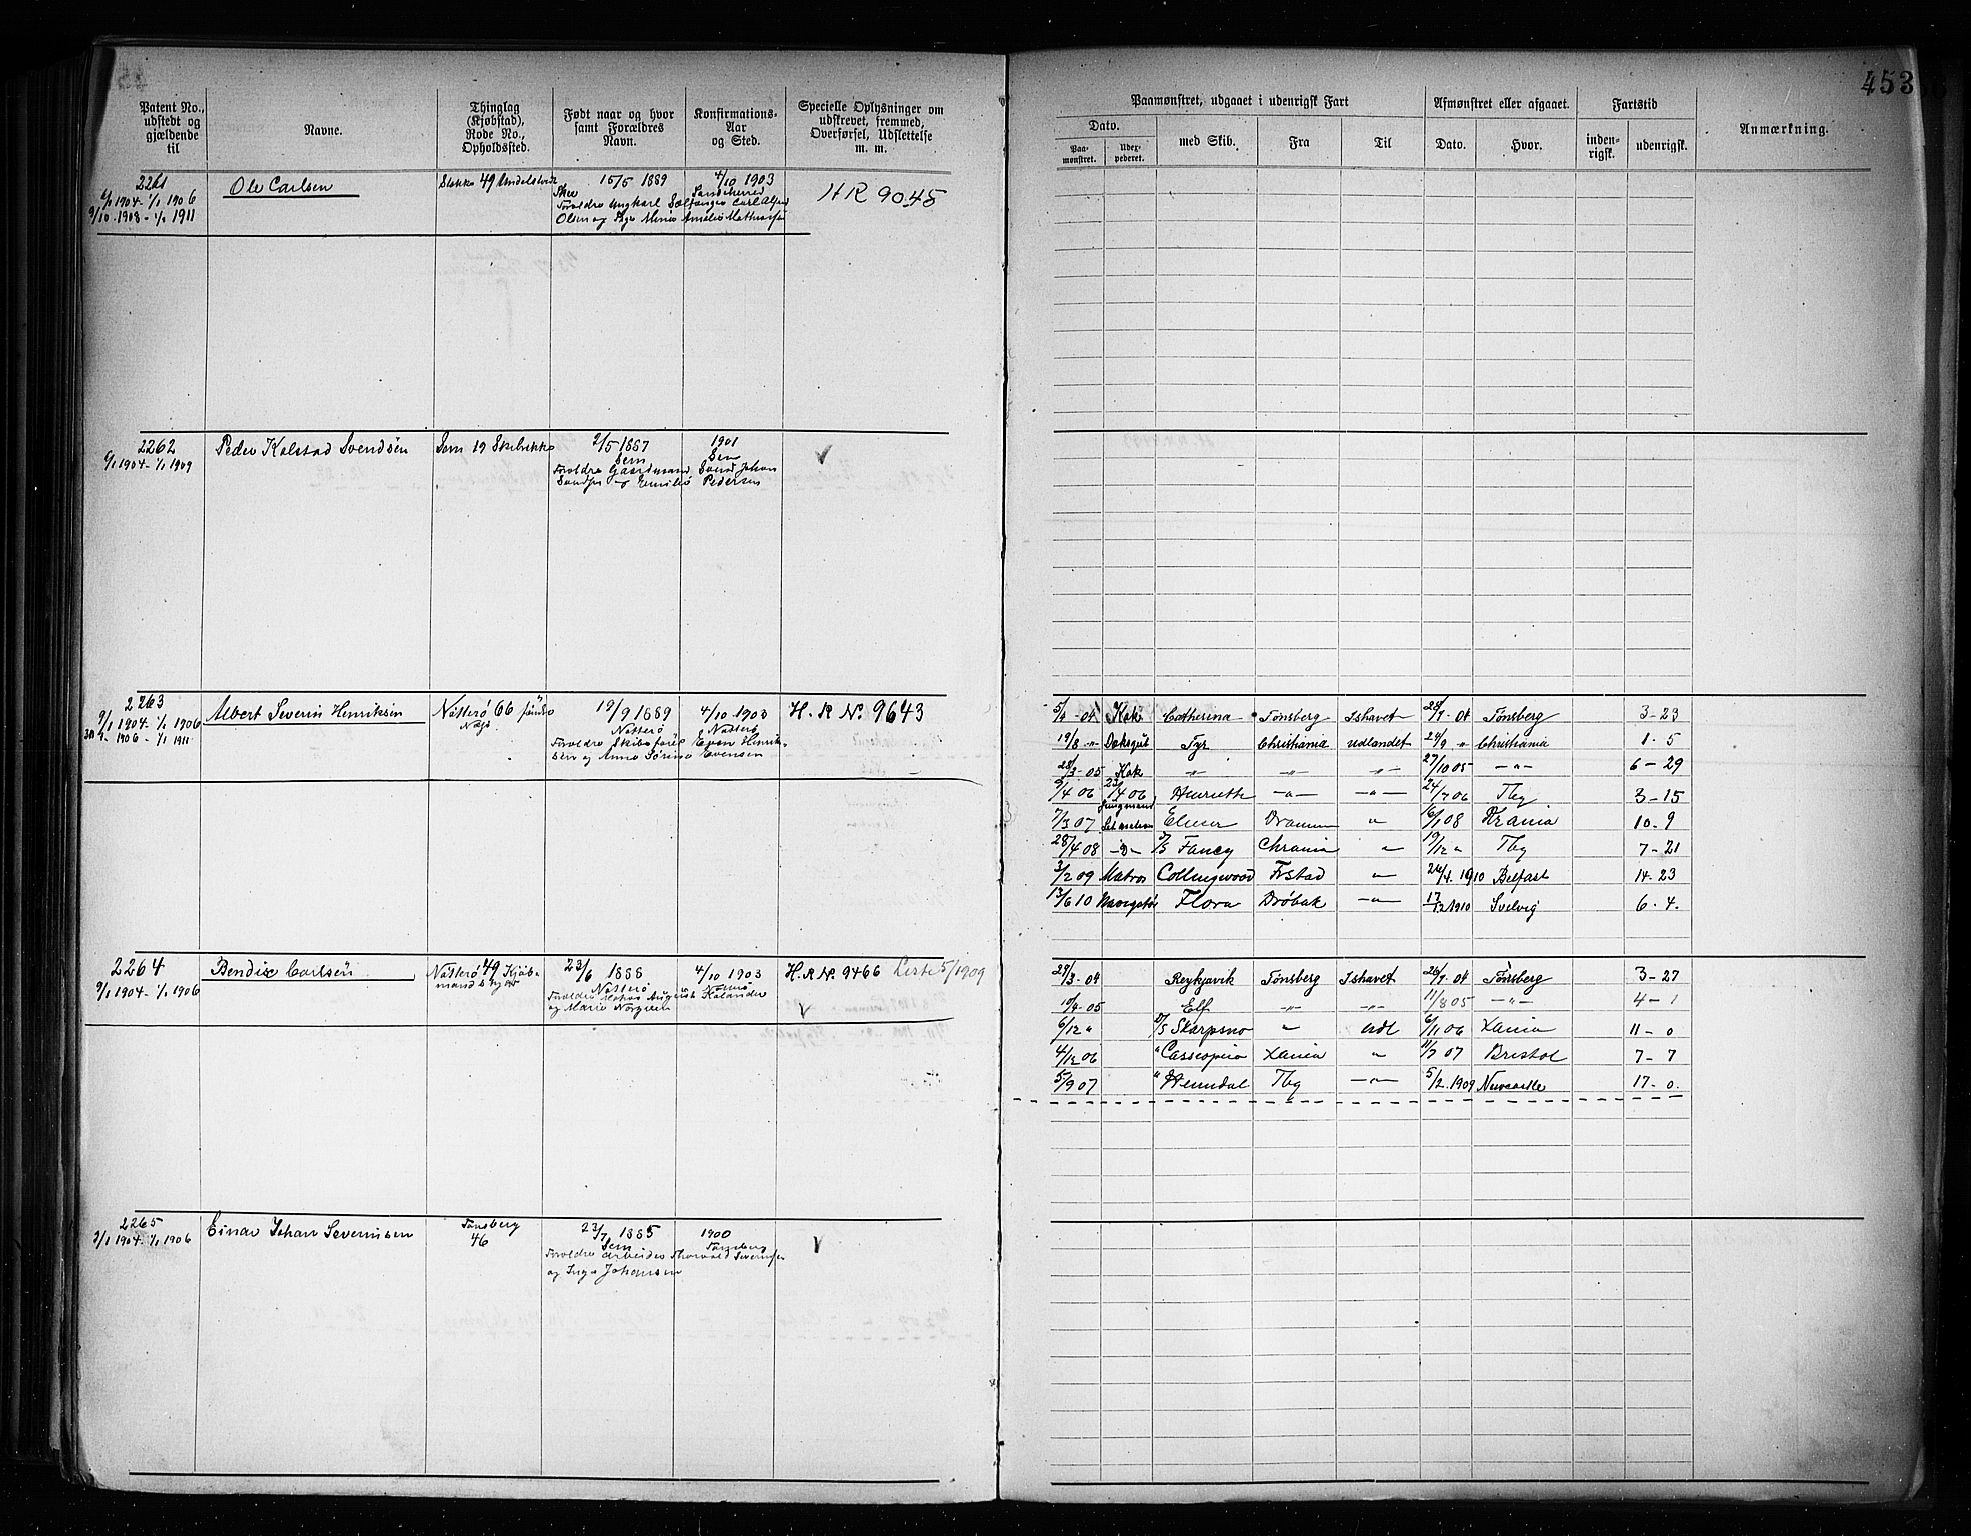 453
Patent No., udstedt og gjældende til
Navne.
Thinglag (Kjøbstad), Rode No., Opholdssted.
Født naar og hvor samt Forældres Navn.
Konfirmations-Aar og Sted.
Specielle Oplysninger om udskrevet, fremmed, Overførsel, Udslettelse m. m.
Paamønstret, udgaaet i udenrigsk Fart
Afmønstret eller afgaaet.
Fartstid
Anmærkning.
Dato.
Paa-mønstret.
Udex-pederet.
med Skib.
Fra
Til
Dato.
Hvor.
inden-rigsk.
udenrigsk.
2261 Ole Carlsen Stokke 49 15/5 1889 4/10 1903 HR 9045
1904 - 1/1 1906 Skee Sandeherred
9/10 1908 - 1/1 1911 Forældre Carl Alfred
Olsen og Marie Amalie Mathiesen
2262 Peder Kolstad Svendsen Sem 19 2/5 1887 1901
1904 - 1/1 1909 Sem Sem
Forældre Gaardmand Svend Johan
Pedersen
2263 Albert Severin Henriksen Nøtterø 66 19/9 1889 4/10 1903 H. R No. 9643
9/1 1904 - 1/1 1906 Nøtterø Nøtterø
1906 - 1/1 1911 Forældre Even Henrik-
sen og Anna Sørine Evensen
5/4 - 04 Kok Catherina Tønsberg Ishavet 28/7 - 04 Tønsberg 3 - 23
19/8 -"- Dæksgut Tyr Christiania Udlandet 24/9 " Christiania 1 - 5
28/3 - 05 Kok -"- -"- -"- 27/10 05 -"- 6 - 29
9/4 06 Henriette -"- -"- 24/7 06 Tbg 3 - 15
7/3 07 Drammen " 16/1 08 Krania 10 - 9
28/4 08 -"- D/S Fancy Chrania " 19/12 " Tbg 7 - 21
3/2 09 Matros Collingwood Frstad -"- 26/4 1910 Belfast 14 - 23
13/6 10 Flora Drøbak -"- 17/12 1910 Svelvig 6 - 4.
2264 Bendix Carlsen Nøtterø 49 23/6 1888 4/10 1903 H. R No. 9466 Liste 5/1909
9/1 1904 - 1/1 1906 Nøtterø Nøtterø
Forældre August Kølander
og Marie
29/3 - 04 Reykjavik Tønsberg Ishavet 26/7 - 04 Tønsberg 3 - 27
10/4 - 05 Elf -"- -"- 11/8 05 -"- 4 - 1
6/12 " D/S Skarpsno " Udl 6/11 06 Xania 11 - 0
4/12 06 " Cassiopeia Xania " 11/7 07 Bristol 7 - 7
5/9 07 " Heimdal Tbg -"- 5/2 1909 Newcastle 17 - 0.
2265 Einar Johan Severinsen Tønsberg 23/7 1885 1900
1904 - 1/1 1906 46 Sem Tønsberg
Forældre Arbeider Thorvald Severinsen
og Inga Johansen